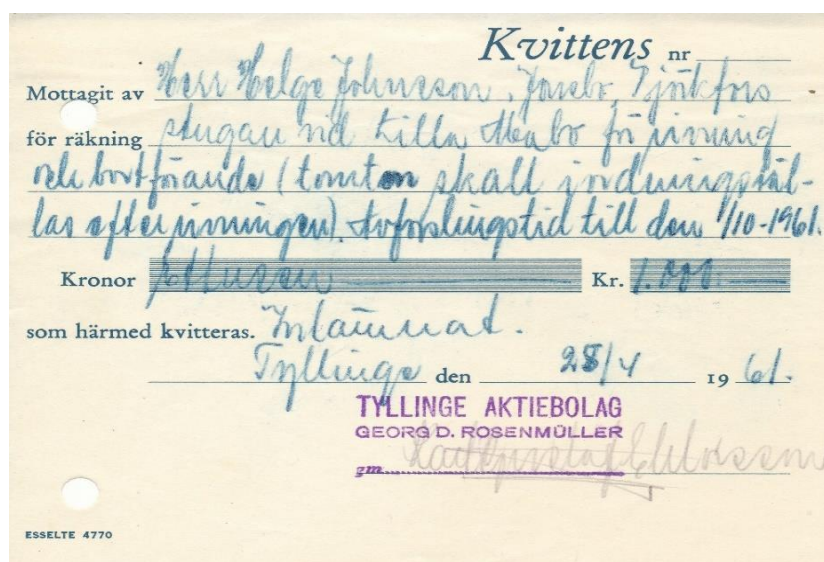 Kvittens nr
Mottagit av Herr Helge Johnsson, Jonsbo, Björkfors
för räkning stugan vid Lilla för rivning
och bortförande (tomten skall iordningstäl-
las efter rivningen). Avforslingstid till den 1/10-1961.
Kronor Ettusen Kr. 1.000:
som härmed kvitteras. Inlämnat.
Tyllinge den 28/4 1961.
TYLLINGE AKTIEBOLAG
GEORG D. ROSENMÜLLER
gm
ESSELTE 4770